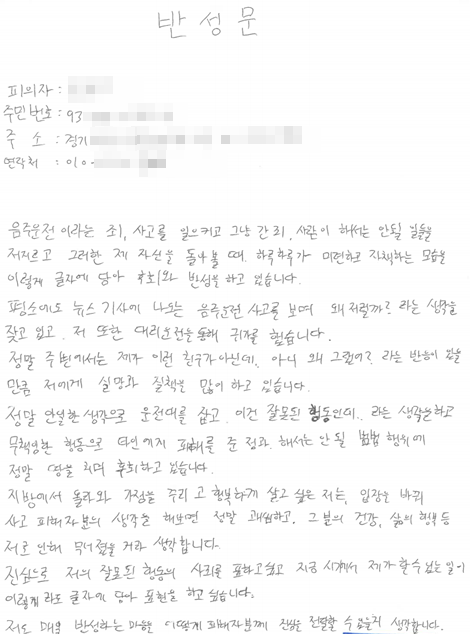 반성문
피의자 :
주민번호 : 93
주 소 : 경기
연락처 : 010-
음주운전 이라는 죄, 사고를 일으키고 그냥 간 죄, 사람이 해서는 안될 일들을
저지르고 그러한 제 자신을 돌아볼 때. 하루하루가 미련하고 자책하는 모습을
이렇게 글자에 담아 후회와 반성을 하고 있습니다.
평소에도 뉴스 기사에 나오는 음주운전 사고를 보며 왜저럴까? 라는 생각을
갖고 있고. 저 또한 대리운전을 통해 귀가를 했습니다.
정말 주변에서는 제가 이런 친구가 아닌데. 아니 왜 그랬어? 라는 반응이 있을
만큼 저에게 실망와 질책을 많이 하고 있습니다.
정말 안일한 생각으로 운전대를 잡고. 이건 잘못된 행동인데.. 라는 생각을하고
무책임한 행동으로 타인에게 피해를 준 점과. 해서는 안 될 범법 행위에
정말 땅을 치며 후회하고 있습니다.
지방에서 올라와 가정을 꾸리고 행복하게 살고 싶은 저는, 입장을 바꿔
사고 피해자분의 생각을 해보면 정말 괴롭하고. 그 분의 건강, 삶의 행복 등
저로 인해 무너졌을 거라 생각합니다.
진심으로 저의 잘못된 행동의 사죄를 표하고 싶고 지금 시기에서 제가 할수있는 일이
이렇게 라도 글자에 담아 표현을 하고 싶습니다.
저도 매일 반성하는 마음을 이떻게 피해자분께 진심을 전달할 수 있을지 생각합니다.